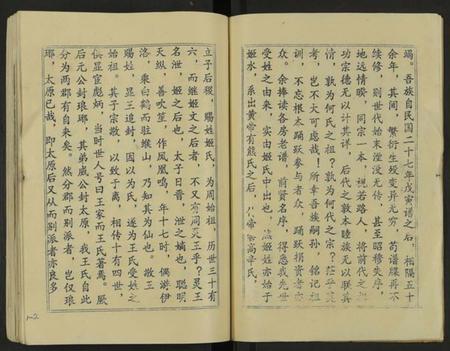 瑒。吾族自民国二十七年戊寅谱之后,相隔五十
余年,其间,繁衍生殁变异无穷,苟谱牒再不
续修,则世代始末湮没无传,甚至昭穆失序,
地远情暌,同宗一本,视若路人,将前代之祖
功宗德无以计其详,后代之敦本睦族无以联其
情,孰为何氏之祖?孰为何代之宗?茫乎莫
考,岂不大可虑哉!所幸吾族嗣孙,铭记祖
训,不忘根本踊跃参与者众,踊跃捐资者亦
众。余捧读各房老谱,前贤名序,得悉我先世
受姓之由来,实由姬氏中出也,姬姓亦始于
姬水,系出黄帝有熊氏之后,帝喾高辛氏,
立子后稷,赐姓姬氏,为周始祖,历世三十有
六,而继姬文之后者,不又有周灵王乎?灵王
名泄,姬之后也,太子曰晋,泄之嫡也,聪明
天纵,善吹笙,作凤凰鸣,年十七时,偶游伊
洛,乘白鹤而驻缑山,乃知其为仙也。敬王
赐姓,显王追封,因以为氏,遂为王氏受姓之
始祖。其子宗敬,以致于离,相传十有四世,
俱显宦彪炳,当时世人号曰王家而王氏著焉。厥
后元公封琅琊,其弟威公封太原,我王氏自此
分为两郡有自来矣。然分郡而别派者,岂仅琅
琊,太原已哉,即太原后又从而别派者亦良多